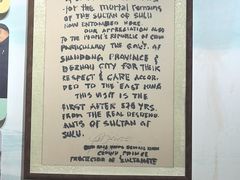 for the mortal remains
of the Sultan of Sulu
now entombed here
our appreciation also
to the People's Republic of China
particularly the Gov't. of
Shandong Province &
Dezhou City for their
respect & care accor
ded to the East King
This visit is the
first after 578 yrs.
from the real descend
ants of Sultan of
Sulu.
Crown Prince
Protector of Sultanate